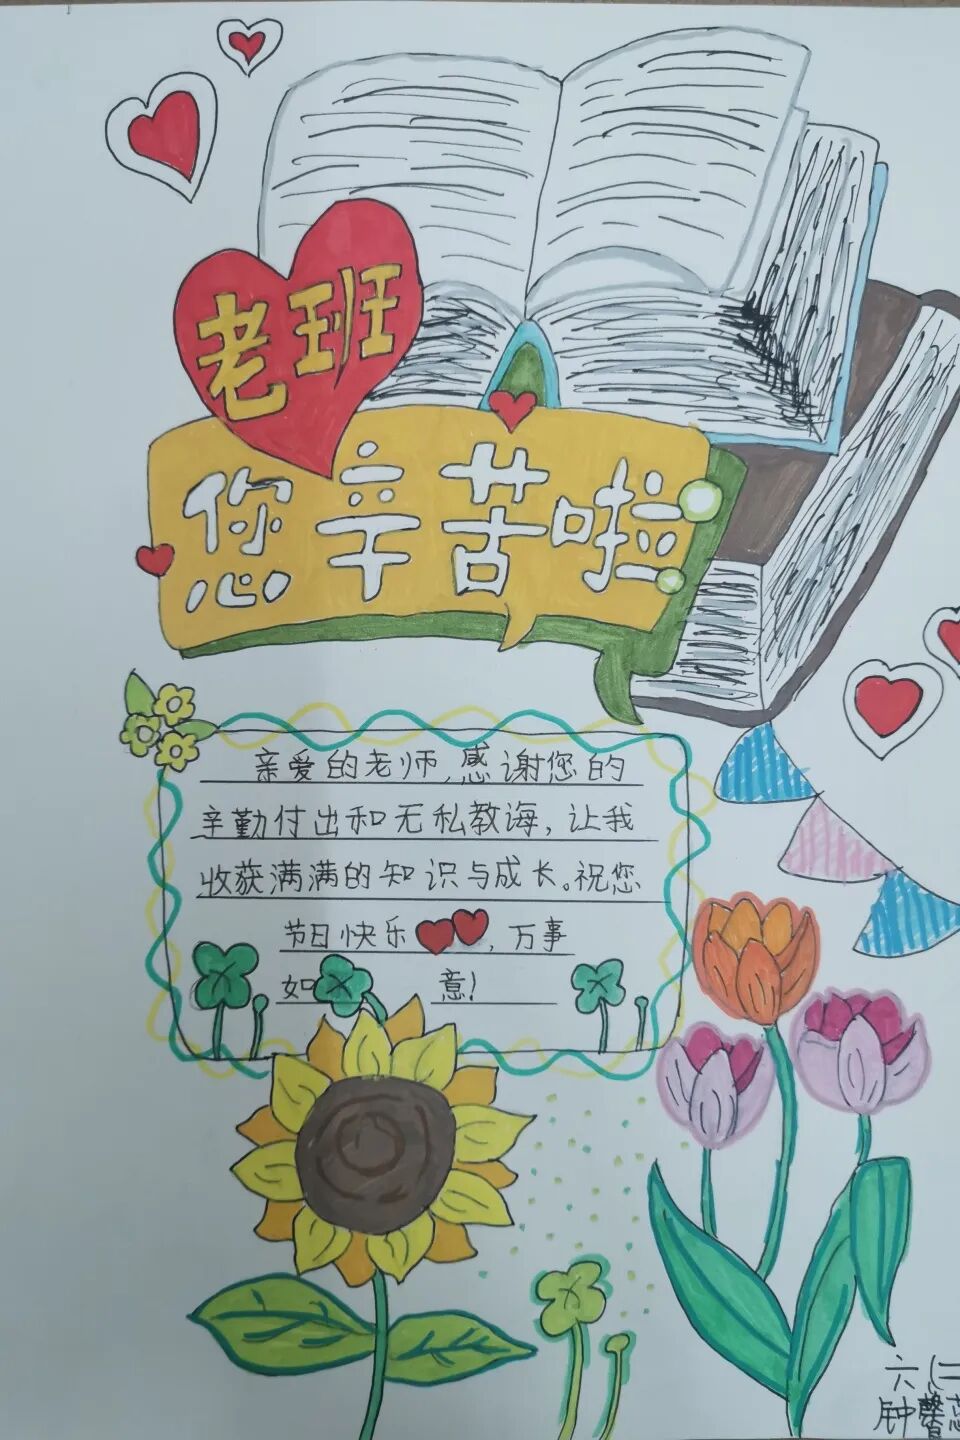 老班
您辛苦啦
亲爱的老师,感谢您的
辛勤付出和无私教诲,让我
收获满满的知识与成长。祝您
节日快乐,万事
如意!
六(二
钟馨蕊